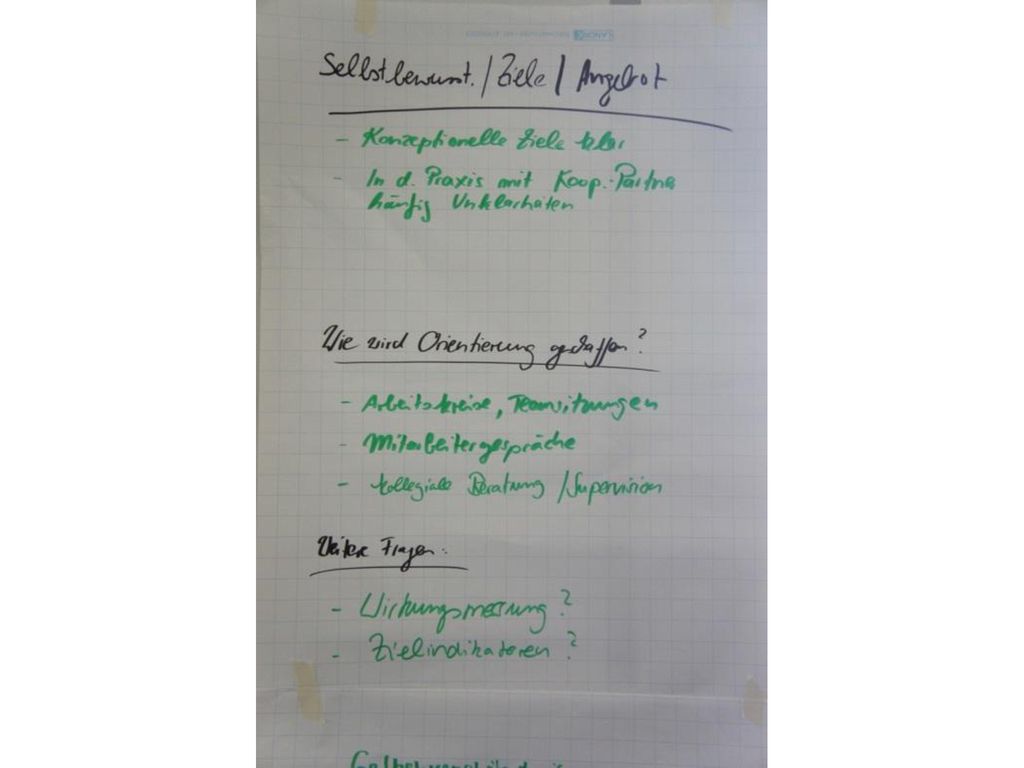 Selbstbewusst. / Ziele / Angebot
- Konzeptionelle Ziele klar
- In d. Praxis mit Koop.-Partner
häufig Unklarheiten
Wie wird Orientierung geschaffen?
- Arbeitskreise, Teamsitzungen
- Mitarbeitergespräche
- kollegiale Beratung / Supervision
Weitere Fragen:
- Wirkungsmessung?
- Zielindikatoren?